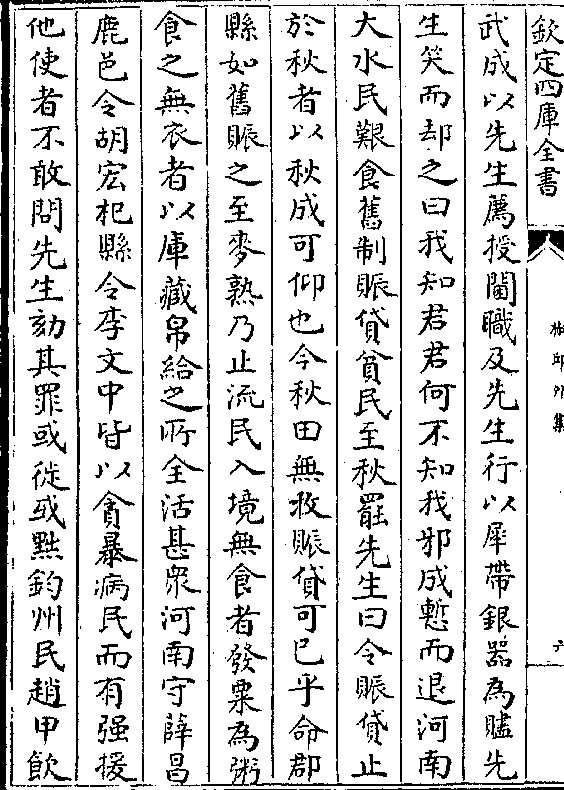 欽定四庫全書
旅邸外集
六
武成以先生薦授閫職及先生行以犀帶銀器為贐先
生笑而却之曰我知君君何不知我邪成慙而退河南
大水民艱食舊制賑貸貧民至秋罷先生曰令賑貸止
於秋者以秋成可仰也今秋田無收賑貸可已乎命郡
縣如舊賑之至麥熟乃止流民入境無食者發粟為粥
食之無衣者以庫藏帛給之所全活甚衆河南守薛昌
鹿邑令胡宏杞縣令李文中皆以貪暴病民而有强援
他使者不敢問先生劾其罪或徙或黜鈞州民趙甲飲